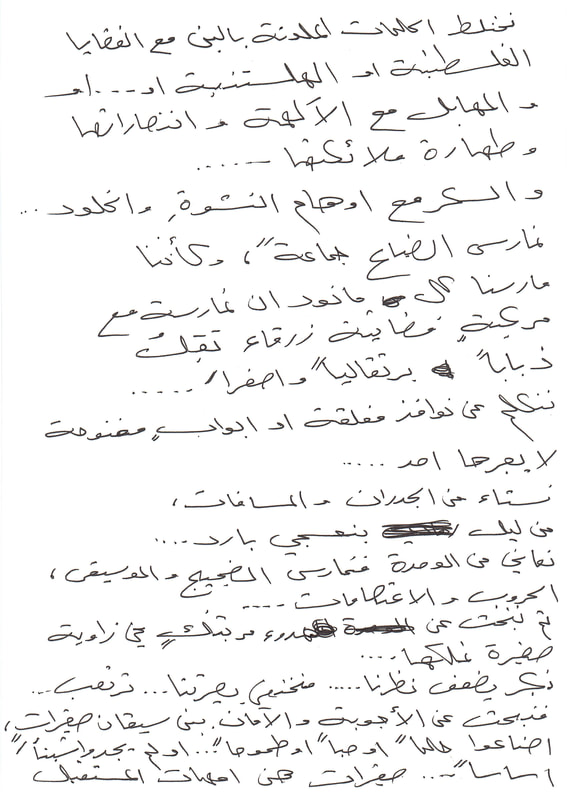 تختلط الكلمات الملونة بالبني مع القضايا
الفلسطينية او الهلستنية او ..... او
و المهابل مع الآلهة و انتصاراتها
و طهارة ملائكتها ......
و السكر مع اوهام النشوةِ والخلود ...
نمارس الضياع جماعةً، وكأننا
مارسنا كل مانود ان نمارسه مع
مركبةٍ فضائية زرقاء تقلُّ
ذباباً برتقالياً و اصفراً .....
نتكلم عن نوافذ مغلقة او ابوابٍ مفتوحة
لا يعبرها احد .....
نستاء من الجدران و المسافات،
من ليل بنفسجي بارد ....
نعاني من الوحدة فنمارس الضجيج والموسيقى،
الحروب و الاعتصامات ....
ثم نبحث عن هدوء مرتبكٍ في زاوية
صغيرة نملكها ....
نكبر يضعف نظرنا ..... فتختفي بصيرتنا ... ترتعب ...
فنبحث عن الأجوبة والأمان بين سيقان صغيرات،
اضاعوا حلماً او حباً او طموحاً ... او لم يجدو اشيئاً
اساساً .... صغيرات هن امهات المستقبل